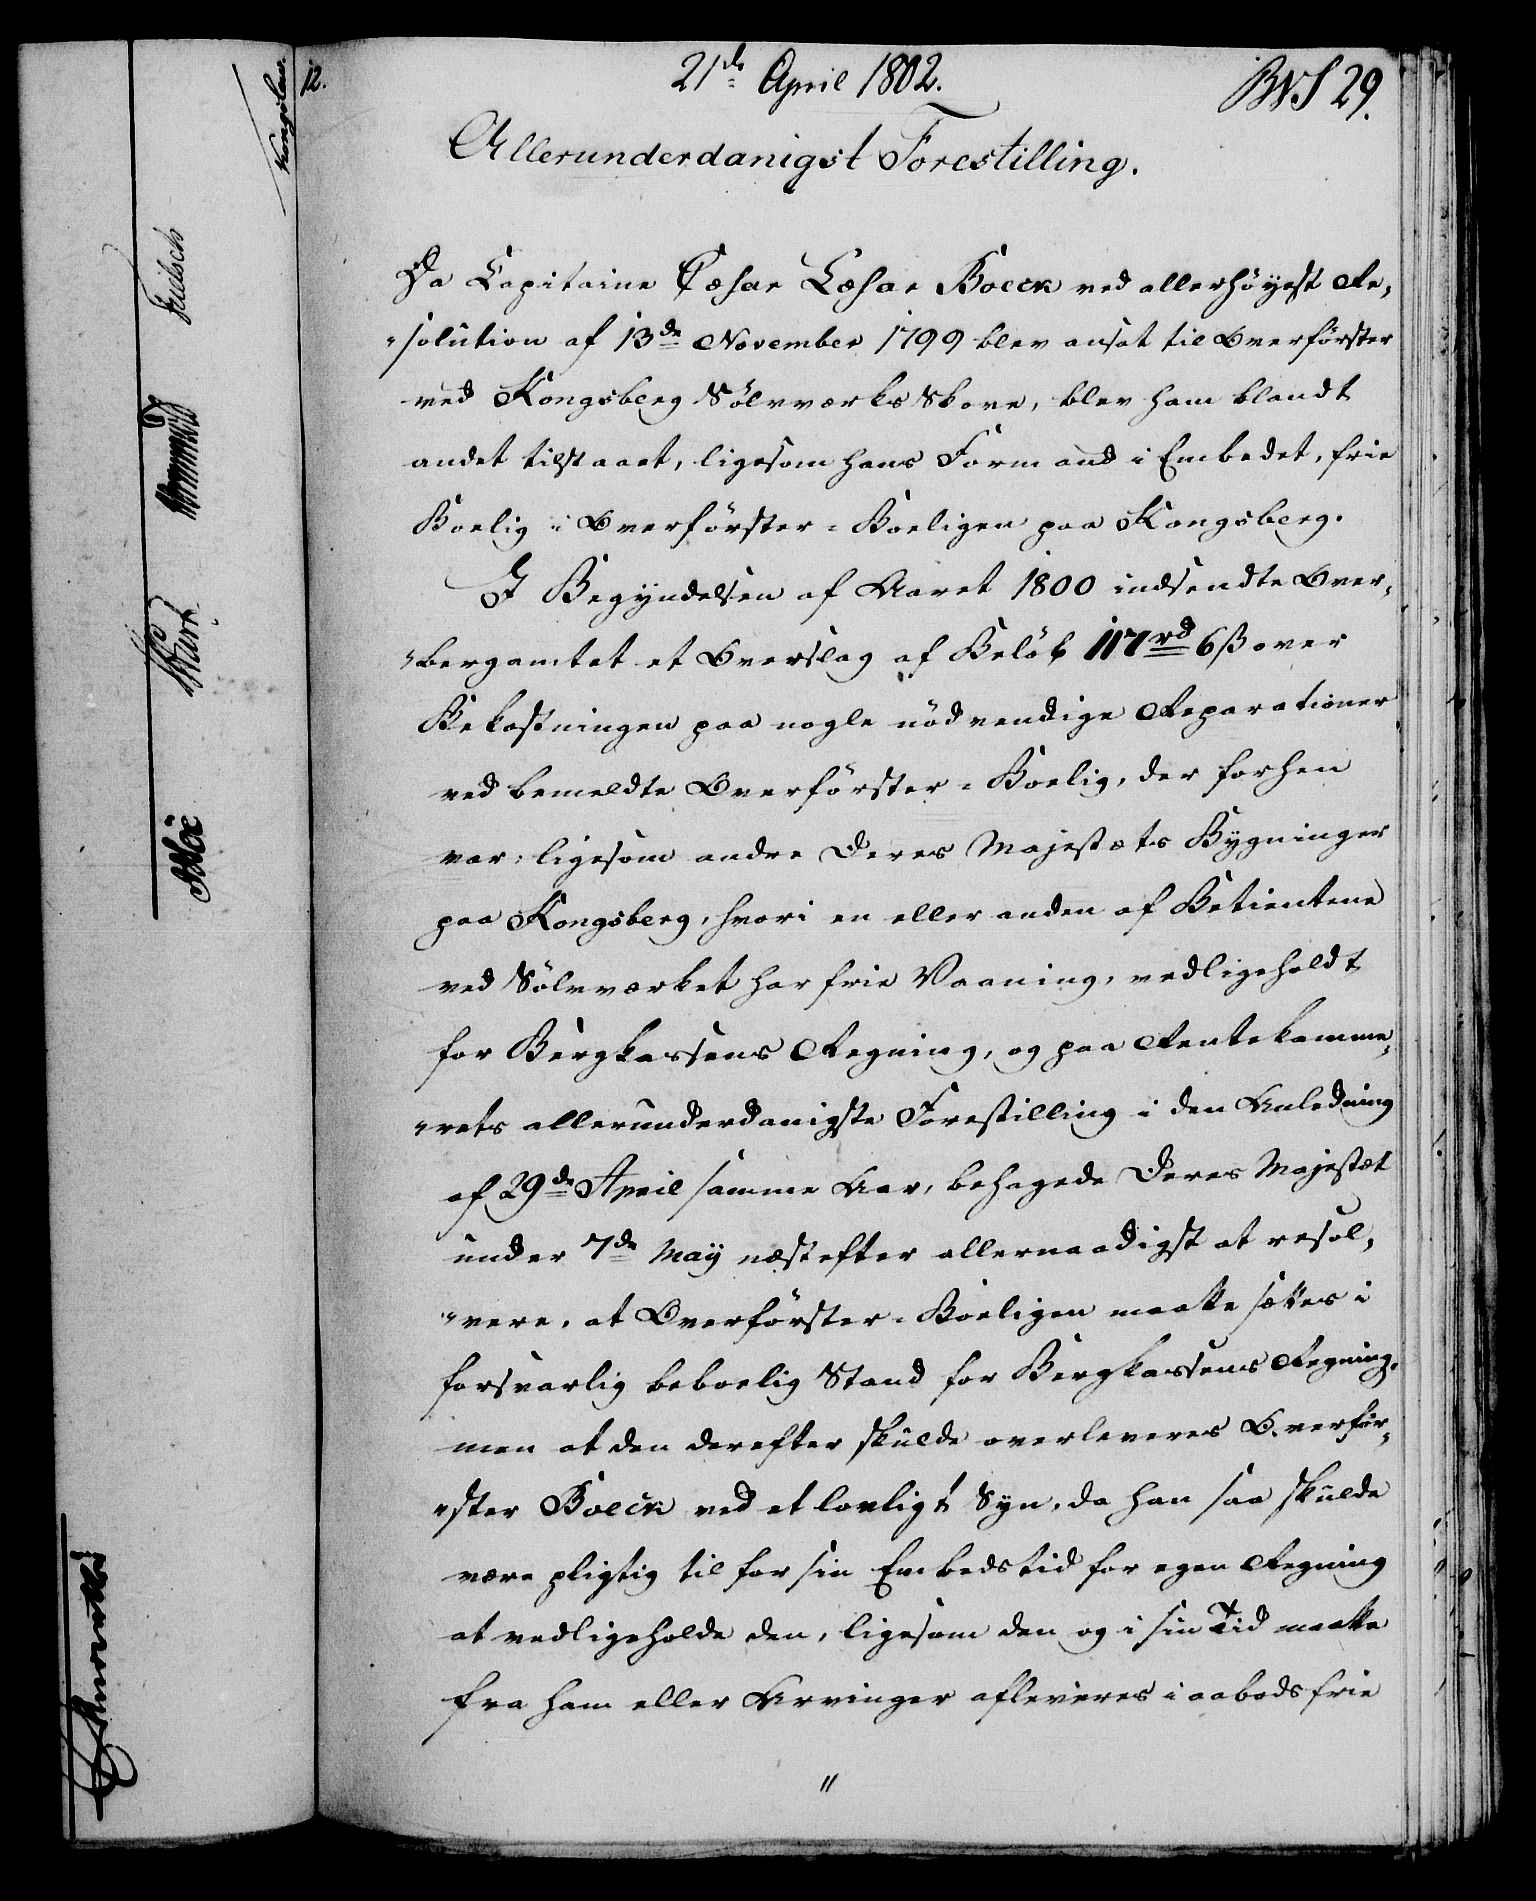 12.
21de April 1802.
BVS 29.
Allerunderdanigst Forestilling.
Da Capitaine Cæsar Læsar Boeck ved allerhöyest Re„
„solution af 13de November 1799 blev ansat til Overförster
ved Kongsberg Sölvværks Skove, blev ham blandt
andet tilstaaet, ligesom hans Formand i Embedet, frie
Boelig i Overförster-Boeligen paa Kongsberg.
I Begyndelsen af Aaret 1800 indsendte Over„
„bergamtet et Overslag af Belöb 117rd 6ß over
Bekostningen paa nogle nödvendige Reparationer
ved bemeldte Overförster-Boelig, der forhen
var, ligesom andre Deres Majestæts Bygninger
paa Kongsberg, hvori en eller anden af Betientene
ved Sölvværket har frie Vaaning, vedligeholdt
for Bergkassens Regning, og paa Rentekamme„
„rets allerunderdanigste Forestilling i den Anledning
af 29de April samme Aar, behagede Deres Majestæt
under 7de Maÿ næstefter allernaadigst at resol„
„vere, at Overförster-Boeligen maatte sættes i
forsvarlig beboelig Stand for Bergkassens Regning,
men at den derefter skulde overleveres Overför„
„ster Boeck ved et lovligt Syn, da han saa skulde
være pligtig til for sin Embedstid for egen Regning
at vedligeholde den, ligesom den og i sin Tid maatte
fra ham eller Arvinger afleveres i aabodsfrie
"